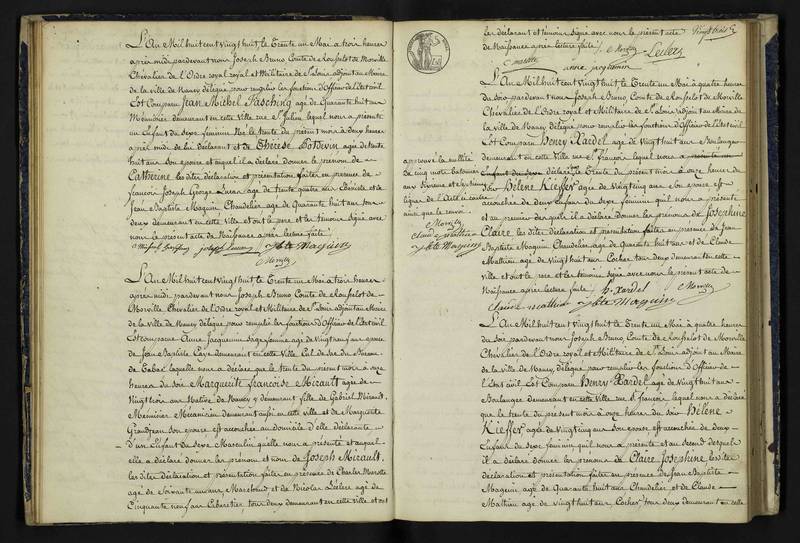 L'An Mil huit cent Vingt huit, le Trente un Mai à trois heures
après midi pardevant nous Joseph Bruno Comte de Rousselot de Morville
Chevalier de l'Ordre royal et Militaire de St Louis adjoint au Maire
de la ville de Nancy délégué pour remplir les fonctions d'Officier de l'Etat civil
Est Comparu Jean Michel Pasching agé de Quarante huit ans
demeurant en cette Ville rue St Julien lequel nous a présenté
un Enfant du sexe féminin Née le trente du présent mois à deux heures
après midi de lui déclarant et de Thérèse
huit ans son épouse et auquel il a déclaré donner le prénom de
Catherine les dites déclaration et présentation faites en présence de
François Joseph George agé de trente quatre ans et de
Jean Baptiste Maguin Chandelier agé de Quarante huit ans tous
deux demeurant en cette ville et ont le père et les témoins signé avec
nous le présent acte de Naissance après lecture faite
Morville
L'An Mil huit cent Vingt huit le Trente un Mai à trois heures
après midi pardevant nous Joseph Bruno Comte de Rousselot de
Morville Chevalier de l'Ordre royal et Militaire de St Louis adjoint au Maire
de la ville de Nancy délégué pour remplir les fonctions d'Officier de l'Etat civil
Est comparue Anne Jacquemin Sage femme agée de Vingt neuf ans épouse
de Jean Baptiste Caye demeurant en cette Ville Cul de Sac du Bureau
de Tabac laquelle nous a déclaré que le trente du présent mois à onze
heures du soir Marguerite Françoise Mirault agée de
Vingt trois ans Native de Nancy y demeurant fille de Gabriel Mirault
Mécanicien demeurant aussi en cette ville et de Marguerite
Grandjean son épouse est accouchée au domicile d'elle déclarante
D'un Enfant du sexe Masculin qu'elle nous a présenté et auquel
elle a déclaré donner les prénom et nom de Joseph Mirault.
les dites déclaration et présentation faites en présence de Charles Marotte
agé de Soixante un ans Marchand, et de Nicolas Leclerc agé de
Cinquante neuf ans Cabaretier, tous deux demeurant en cette ville et ont
les déclarant et témoins signé avec nous le présent acte
de Naissance après lecture faite Morville
Marotte Leclerc
Vingt trois
L'An Mil huit cent Vingt huit, le Trente un Mai à quatre heures
du soir pardevant nous Joseph Bruno, Comte de Rousselot de Morville
Chevalier de l'Ordre royal et Militaire de St Louis adjoint au Maire de
la ville de Nancy délégué pour remplir les fonctions d'Officier de l'Etat civil
Est Comparu Henry Xardel agé de Vingt huit ans Boulanger
demeurant en cette Ville rue St François lequel nous a présenté un
Enfant du sexe déclaré le Trente du présent mois à onze heures du
soir Hélène Kieffer agée de Vingt cinq ans son épouse est
accouchée de deux Enfans du sexe féminin qu'il nous a présenté
et au premier desquels il a déclaré donner les prénoms de Joséphine
Claire les dites déclaration et présentation faites en présence de Jean
Baptiste Maguin Chandelier agé de Quarante huit ans et de Claude
Mathieu agé de Vingt huit ans Cocher tous deux demeurant en cette
ville et ont le père et les témoins signé avec nous le présent acte de
Naissance après lecture faite h. Xardel Morville
Claude Mathieu Jbte Maguin
approuvé la nullité
de cinq mots batonnés
aux dixième et septième
ligne de l'acte ci contre
ainsi que le renvoi
Morville
Claude Mathieu
Jbte Maguin
L'An Mil huit cent Vingt huit le Trente un Mai à quatre heures
du soir pardevant nous Joseph Bruno, Comte de Rousselot de Morville
Chevalier de l'Ordre royal et Militaire de St Louis adjoint au Maire
de la ville de Nancy, délégué pour remplir les fonctions d'Officier de
l'Etat civil Est Comparu Henry Xardel agé de Vingt huit ans
Boulanger demeurant en cette Ville rue St François lequel nous a déclaré
que le trente du présent mois à onze heures du soir Hélène
Kieffer agée de Vingt cinq ans son épouse est accouchée de deux
Enfans du sexe féminin qu'il nous a présenté et au second desquels
il a déclaré donner les prénoms de Claire Joséphine, les dites
déclaration et présentation faites en présence de Jean Baptiste
Maguin agé de Quarante huit ans Chandelier et de Claude
Mathieu agé de Vingt huit ans Cocher tous deux demeurant en cette